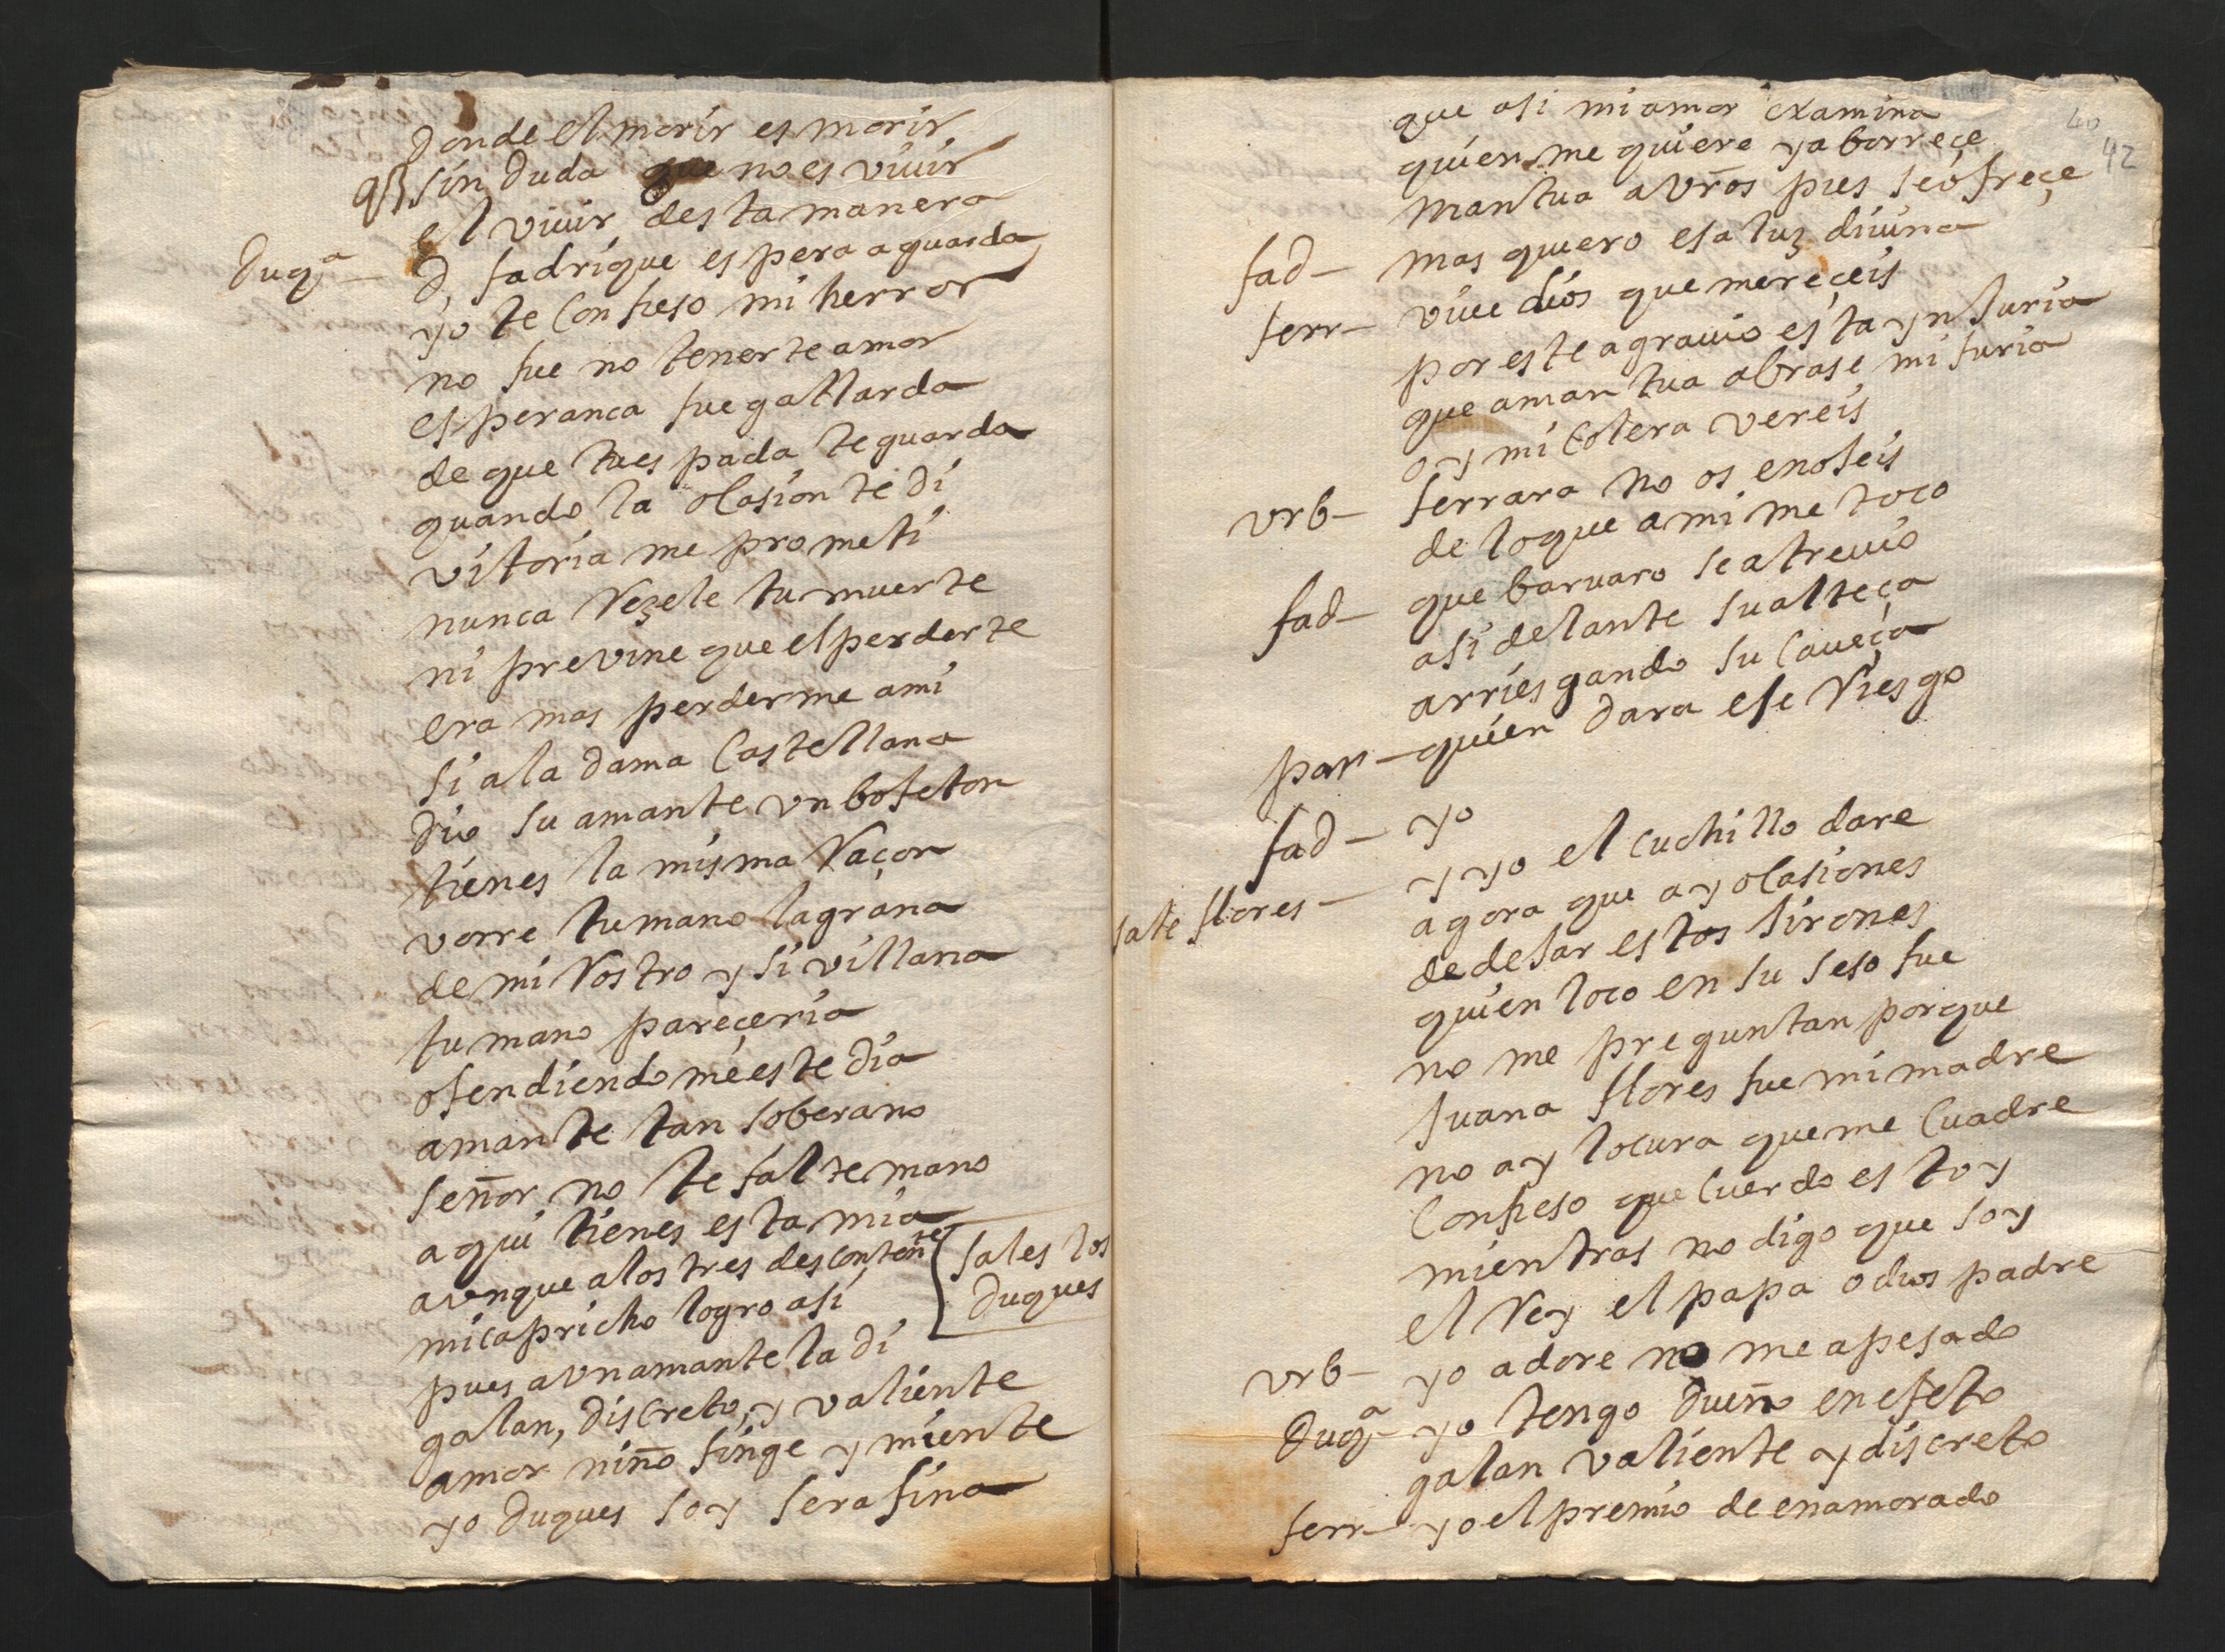 donde el morir es morir
q sin duda que no es viuir
el viuir desta manera
duqª — d, fadrique espera aguarda
yo te confieso mi herror
no fue no tenerte amor
esperanca fue gallarda
de que tu espada te guarda
quando la ocasion te di
vitoria me prometi
nunca Rezele tu muerte
ni previne que el perderte
era mas perderme ami
si a la dama castellana
dio su amante vn bofeton
tienes la misma Raçon
vorre tu mano la grana
de mi Rostro y si villana
tu mano pareçeria
ofendiendome este dia
amante tan soberano
señor no te falte mano
aqui tienes esta mia
avnque a los tres descontente
sales los
duques
mi capricho logro asi
pues a vn amante la di
galan, discreto, y valiente
amor niño finge y miente
yo duques soy serafina
40
42
que asi mi amor examina
quien me quiere y aborreçe
mantua a vrõs pies se ofreçe
fad — mas quiero esa luz diuina
ferr — viue dios que mereçeis
por este agrauio esta ynJuria
que a mantua abrase mi furia
oy mi colera vereis
vrb — ferrara no os enoJeis
de lo que a mi me toco
fad — que baruaro se atreuio
asi delante su alteça
arriesgando su caueça
par — quien dara ese Riesgo
fad — yo
sale flores — y yo el cuchillo dare
agora que ay ocasiones
de deJar estos Jirones
quien loco en su seso fue
no me preguntan porque
Juana flores fue mi madre
no ay locura que me cuadre
confieso que cuerdo estoy
mientras no digo que soy
el Rey el papa o dios padre
vrb — yo adore no me a pesado
duqª — yo tengo dueño en efeto
galan valiente y discreto
ferr — yo el premio de enamorado